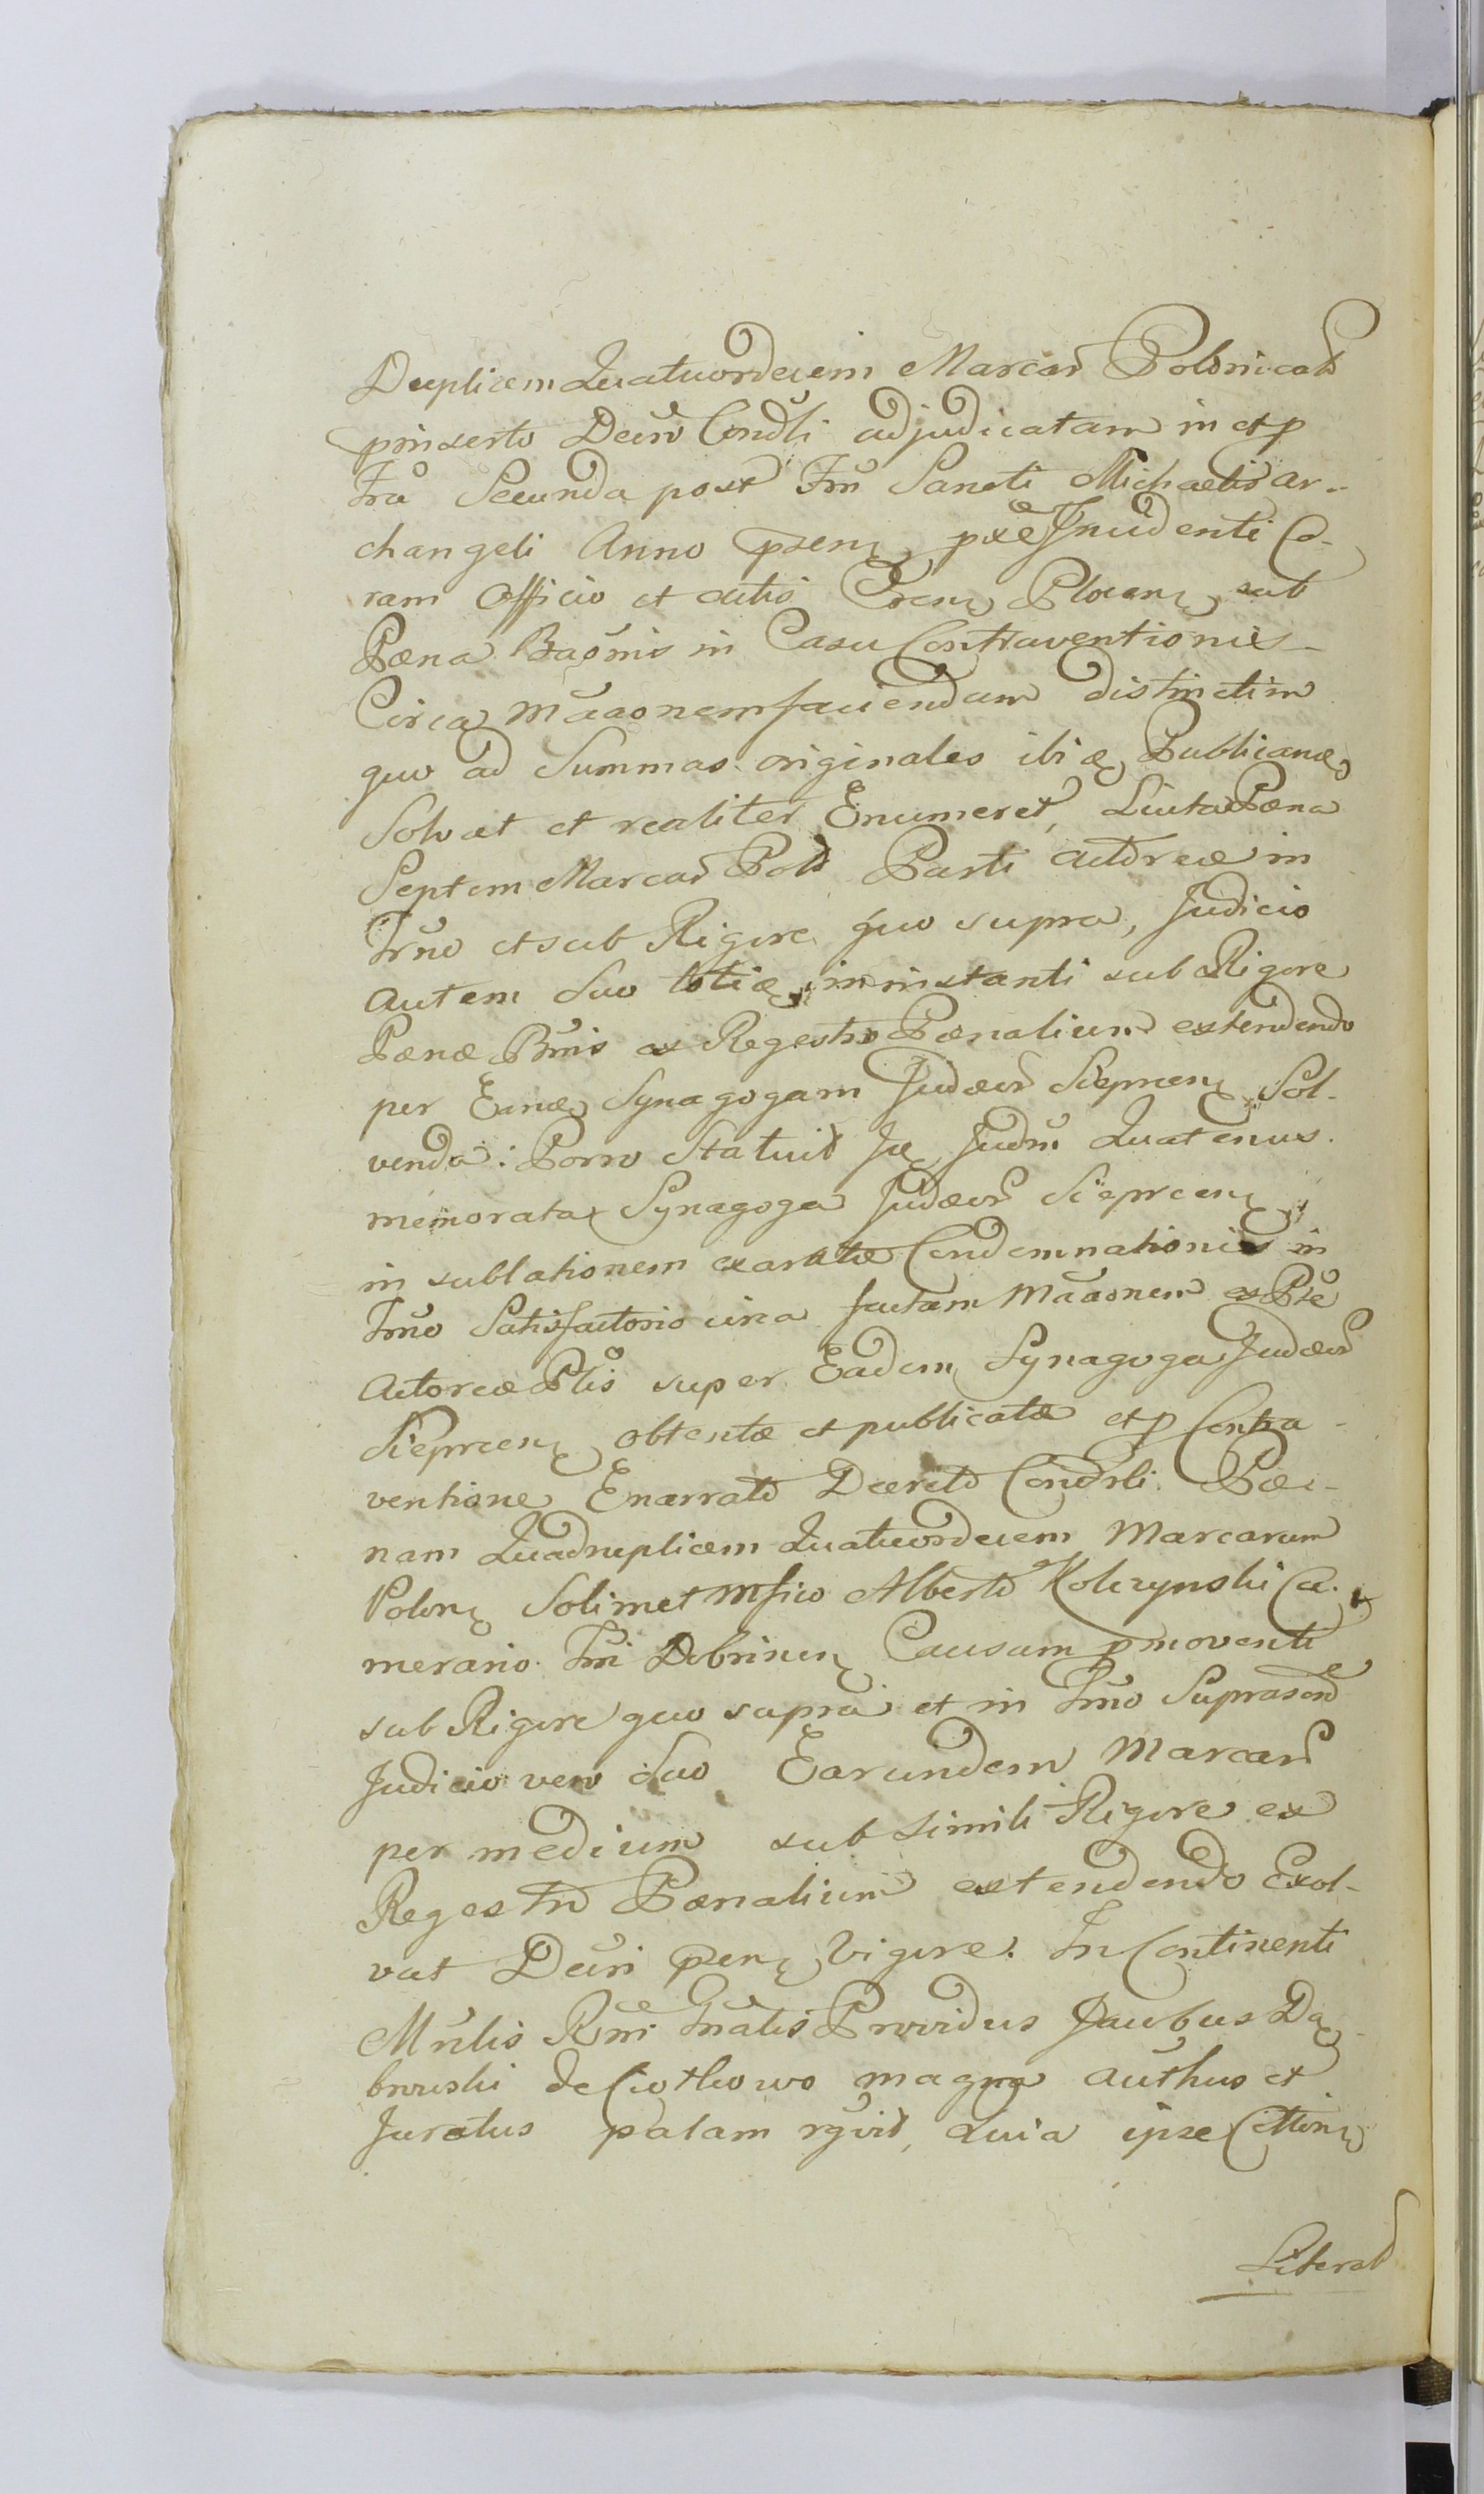 Duplicem Quatuordecim Marcar Polonicales
pinserto Decro Condli adjudicatam in et p
Fra Secunda post Fm Sancti Michaelis Ar-
changeli Anno psen pxe Incidenti Co-
ram Officio et Actis Cren Plocen sub
Pæna Baonis in Casu Contraventionis
Circa Maaonem faciendam distinctim
quo ad Summas originales ibi Publicanæ
Solvat et realiter Enumeret, Luita Pæna
Septem Marcar Pold Parti Actoreæ in
Trno et sub Rigore quo supra, Judicio
autem Suo in instanti sub Rigore
Pænæ Bnis ex Regestro Pænalium extendendo
per Eanæ Synagogam Judæor Sieprcen Sol-
venda: Porro Statuit Judm Quatenus
memorata Synagoga Judæor Sieprcen
in sublationem exaratæ Condemnationis in
Trmo Satisfactorio circa factam Maaonem ex Pte
Actoreæ Ptis super Eadem Synagoga Judæor
Sieprcen obtentæ et publicatæ et p Contra-
ventione Enarrato Decreto Condrli Pæ-
nam Quadruplicem Quatuordecem Marcarum
Polon Solimet Mfico Alberto Kolczynski Ca-
merario Tri Dobrinen Causam pmoventi
sub Rigore quo supra et in Trmo Suprascr
Judicio vero Suo Earundem Marcar
per medium sub Simili Rigore ex
Regestro Pænalium extendendo Exol-
vat Decri psen Vigore. In Continenti
Mnlis Rni Gnalis Providus Jacobus Dą-
browski de Ciothowo magna Authus et
Juratus palam rgvit, Quia ipse Citton
Literal